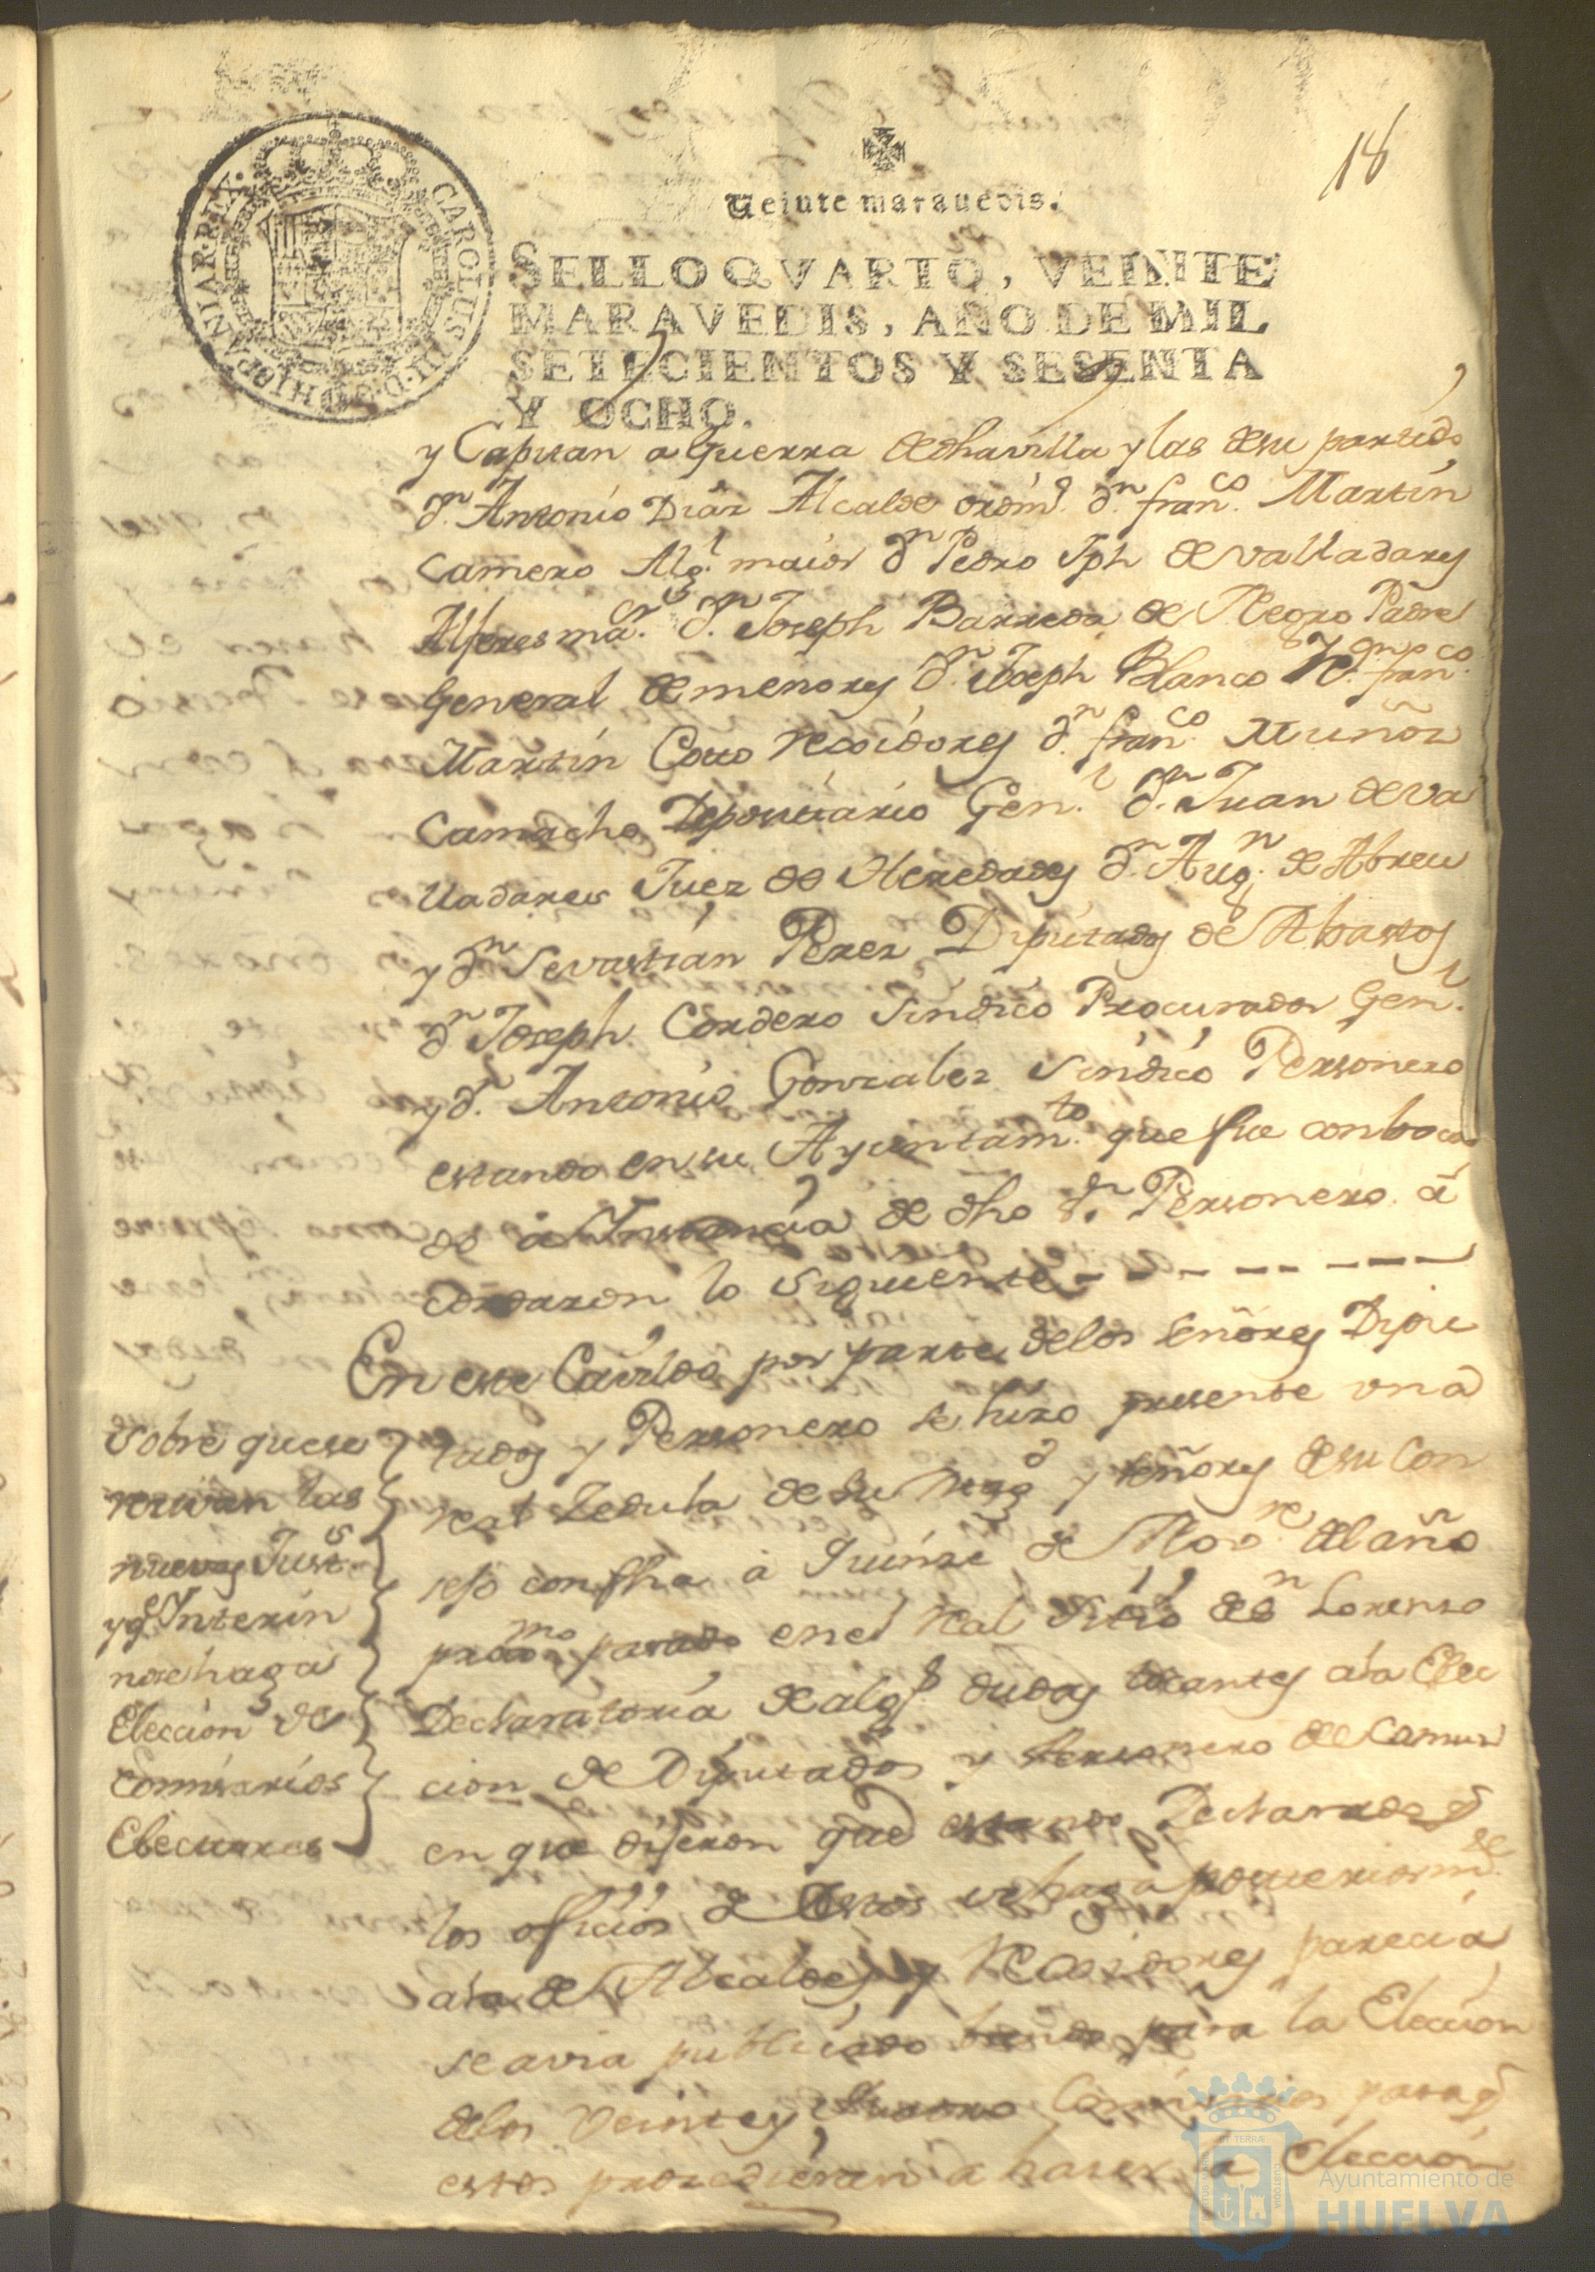 18
Veinte marauedis.
SELLO QVARTO, VEINTE
MARAVEDIS, AÑO DE MIL
SETECIENTOS Y SESENTA
Y OCHO.
CAROLUS III D G HISPANIAR REX
y Capitan a Guerra de dha villa y las de su partido
Dn. Antonio Diaz Alcalde ordino. dn. franco. Martin
Camero Alg.l maior dn Pedro Jph de valladares
Alferes mar. dn. Joseph Barreda de Negro Padre
General de menores dn. Joseph Blanco y dn. franco.
Martin Coto Rexidores dn. franco. Muñoz
Camacho Depositario Gen.l dn. Juan de va
lladares Juez de Heredades dn. Augn. de Abreu
y dn Sevastian Perez Diputados de Abastos
dn Joseph Cordero sindico Procurador Gen.l
y d. Antonio Gonzalez sindico Personero
estando en su Ayuntamto. que fue conboca
do a Instancia de dho Sr. Personero a
cordaron lo siguiente
En este Cavildo por parte de los señores Dipu
tados y Personero se hizo presente una
Real Zedula de su Magd y señores de su Con
sejo con fha a Quinze de Nove. del año
proximo pasado en el Real sitio de Sn Lorenso
Declaratoria de algs. dudas tocantes a la Elec
cion de Diputados y Personero de Comun
en que dijeron que estando Declarado q
los oficios de estos se haga posteriormte.
a la de Alcaldes y Rexidores parecia
se avia publicado bando para la Eleccion
de los veinte y quatro Comisarios para q
estos procedieran a haser la Eleccion
Sobre que se
reciban las
nuevas Justs.
y qe Interin
no se haga
Eleccion de
Comisarios
Electores
Ayuntamiento de
HUELVA